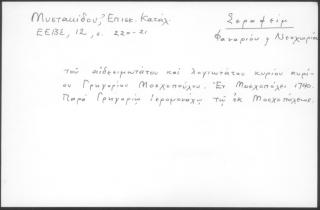 Μυστακίδου, Ἐπισκ. Κατάλ.
ΕΕΒΣ, 12, σ. 220-21
Σεραφείμ
Φαναρίου ἢ Νεοχωρίου
τοῦ αἰδεσιμωτάτου καὶ λογιωτάτου κυρίου κυρί-
ου Γρηγορίου Μοσχοπόλεου. Ἐν Μοσχοπόλει 1740.
Παρὰ Γρηγορίῳ Ἱερομονάχῳ τῷ ἐκ Μοσχοπόλεως.